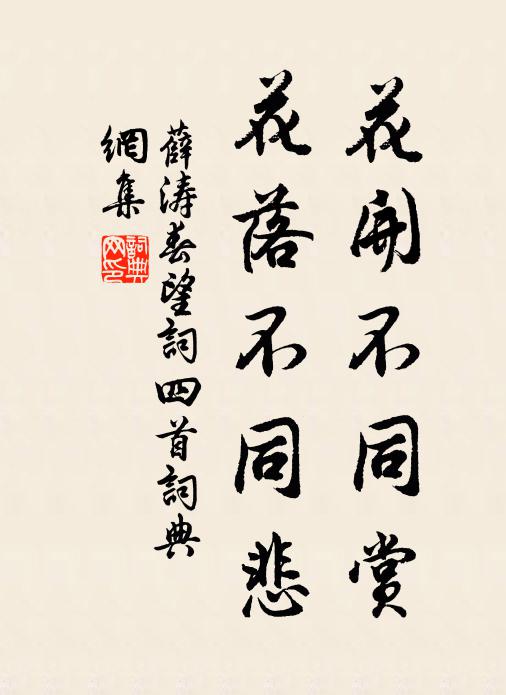 花開不同賞
花落不同悲
薛涛春望詞四首詞典
網集
詞典網印